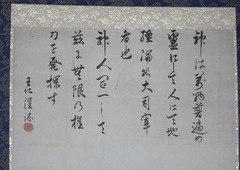 神は萬物普遍の
霊にして人は天地
經綸の大司宰
者也
神人合一して
茲に無限の權
力を発揮す
王仁